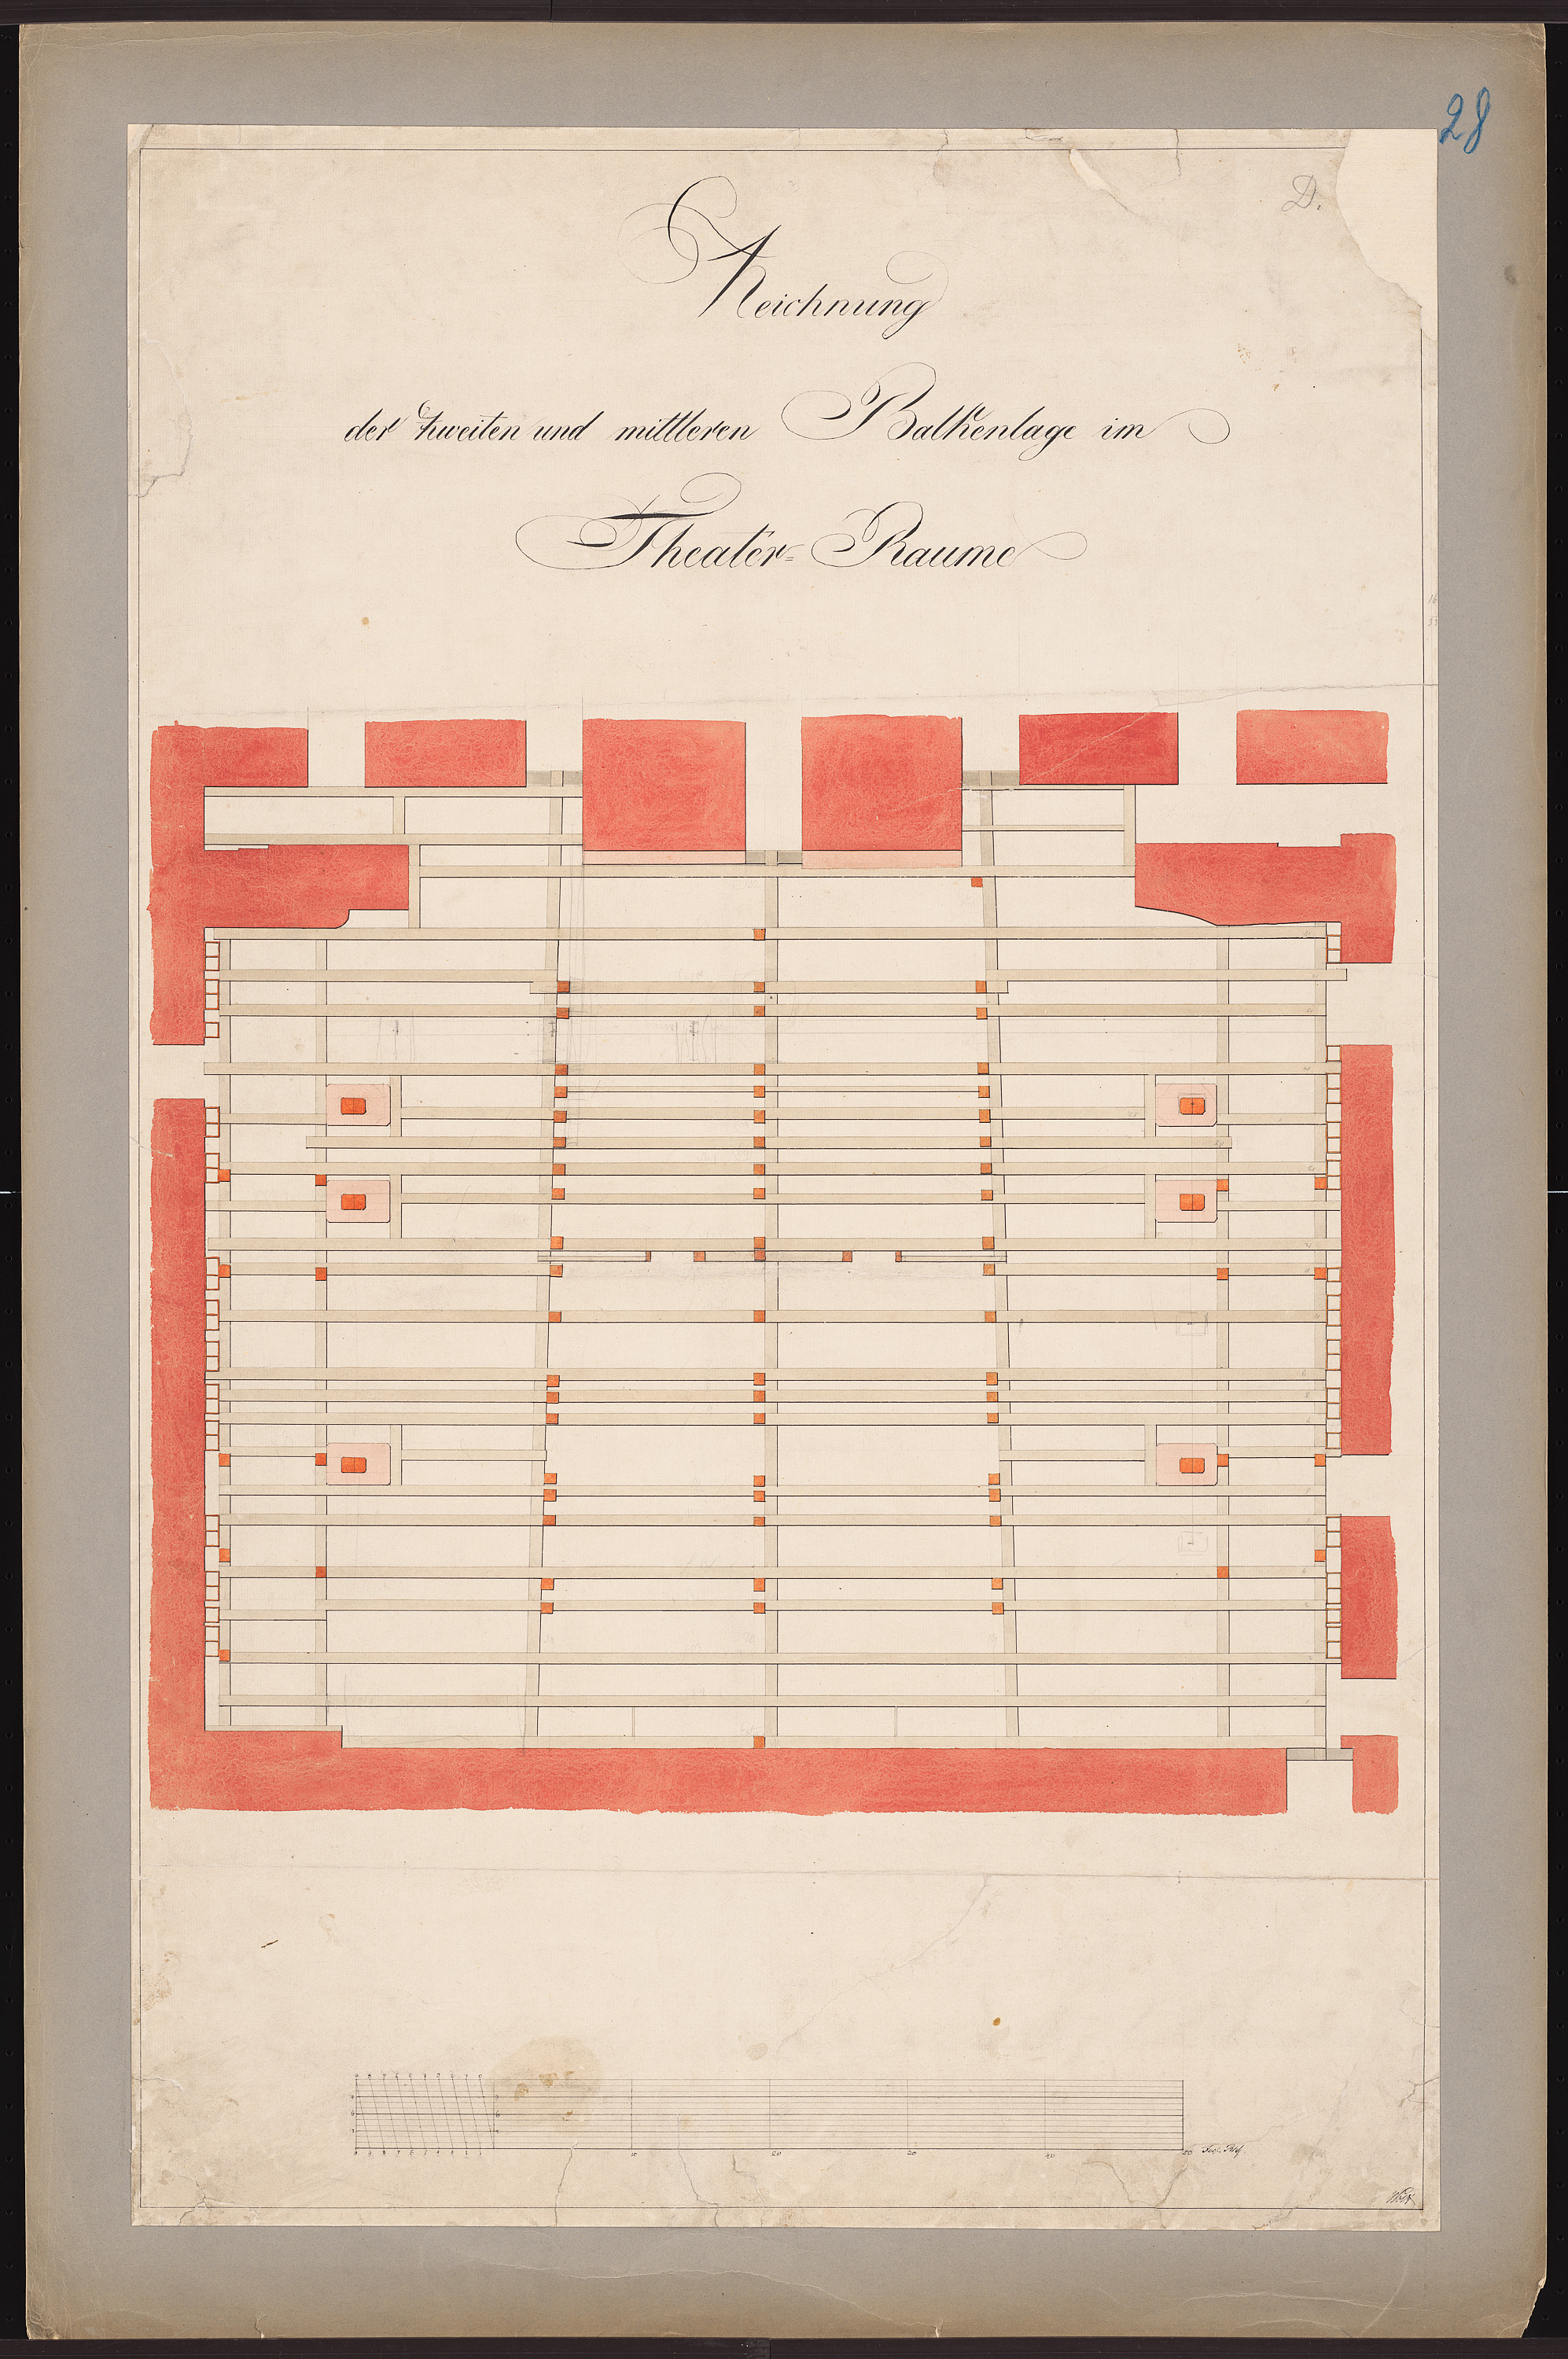 28
D.
Zeichnung
der zweiten und mittleren Balkenlage im
Theater=Raume
10 20 30 40 50